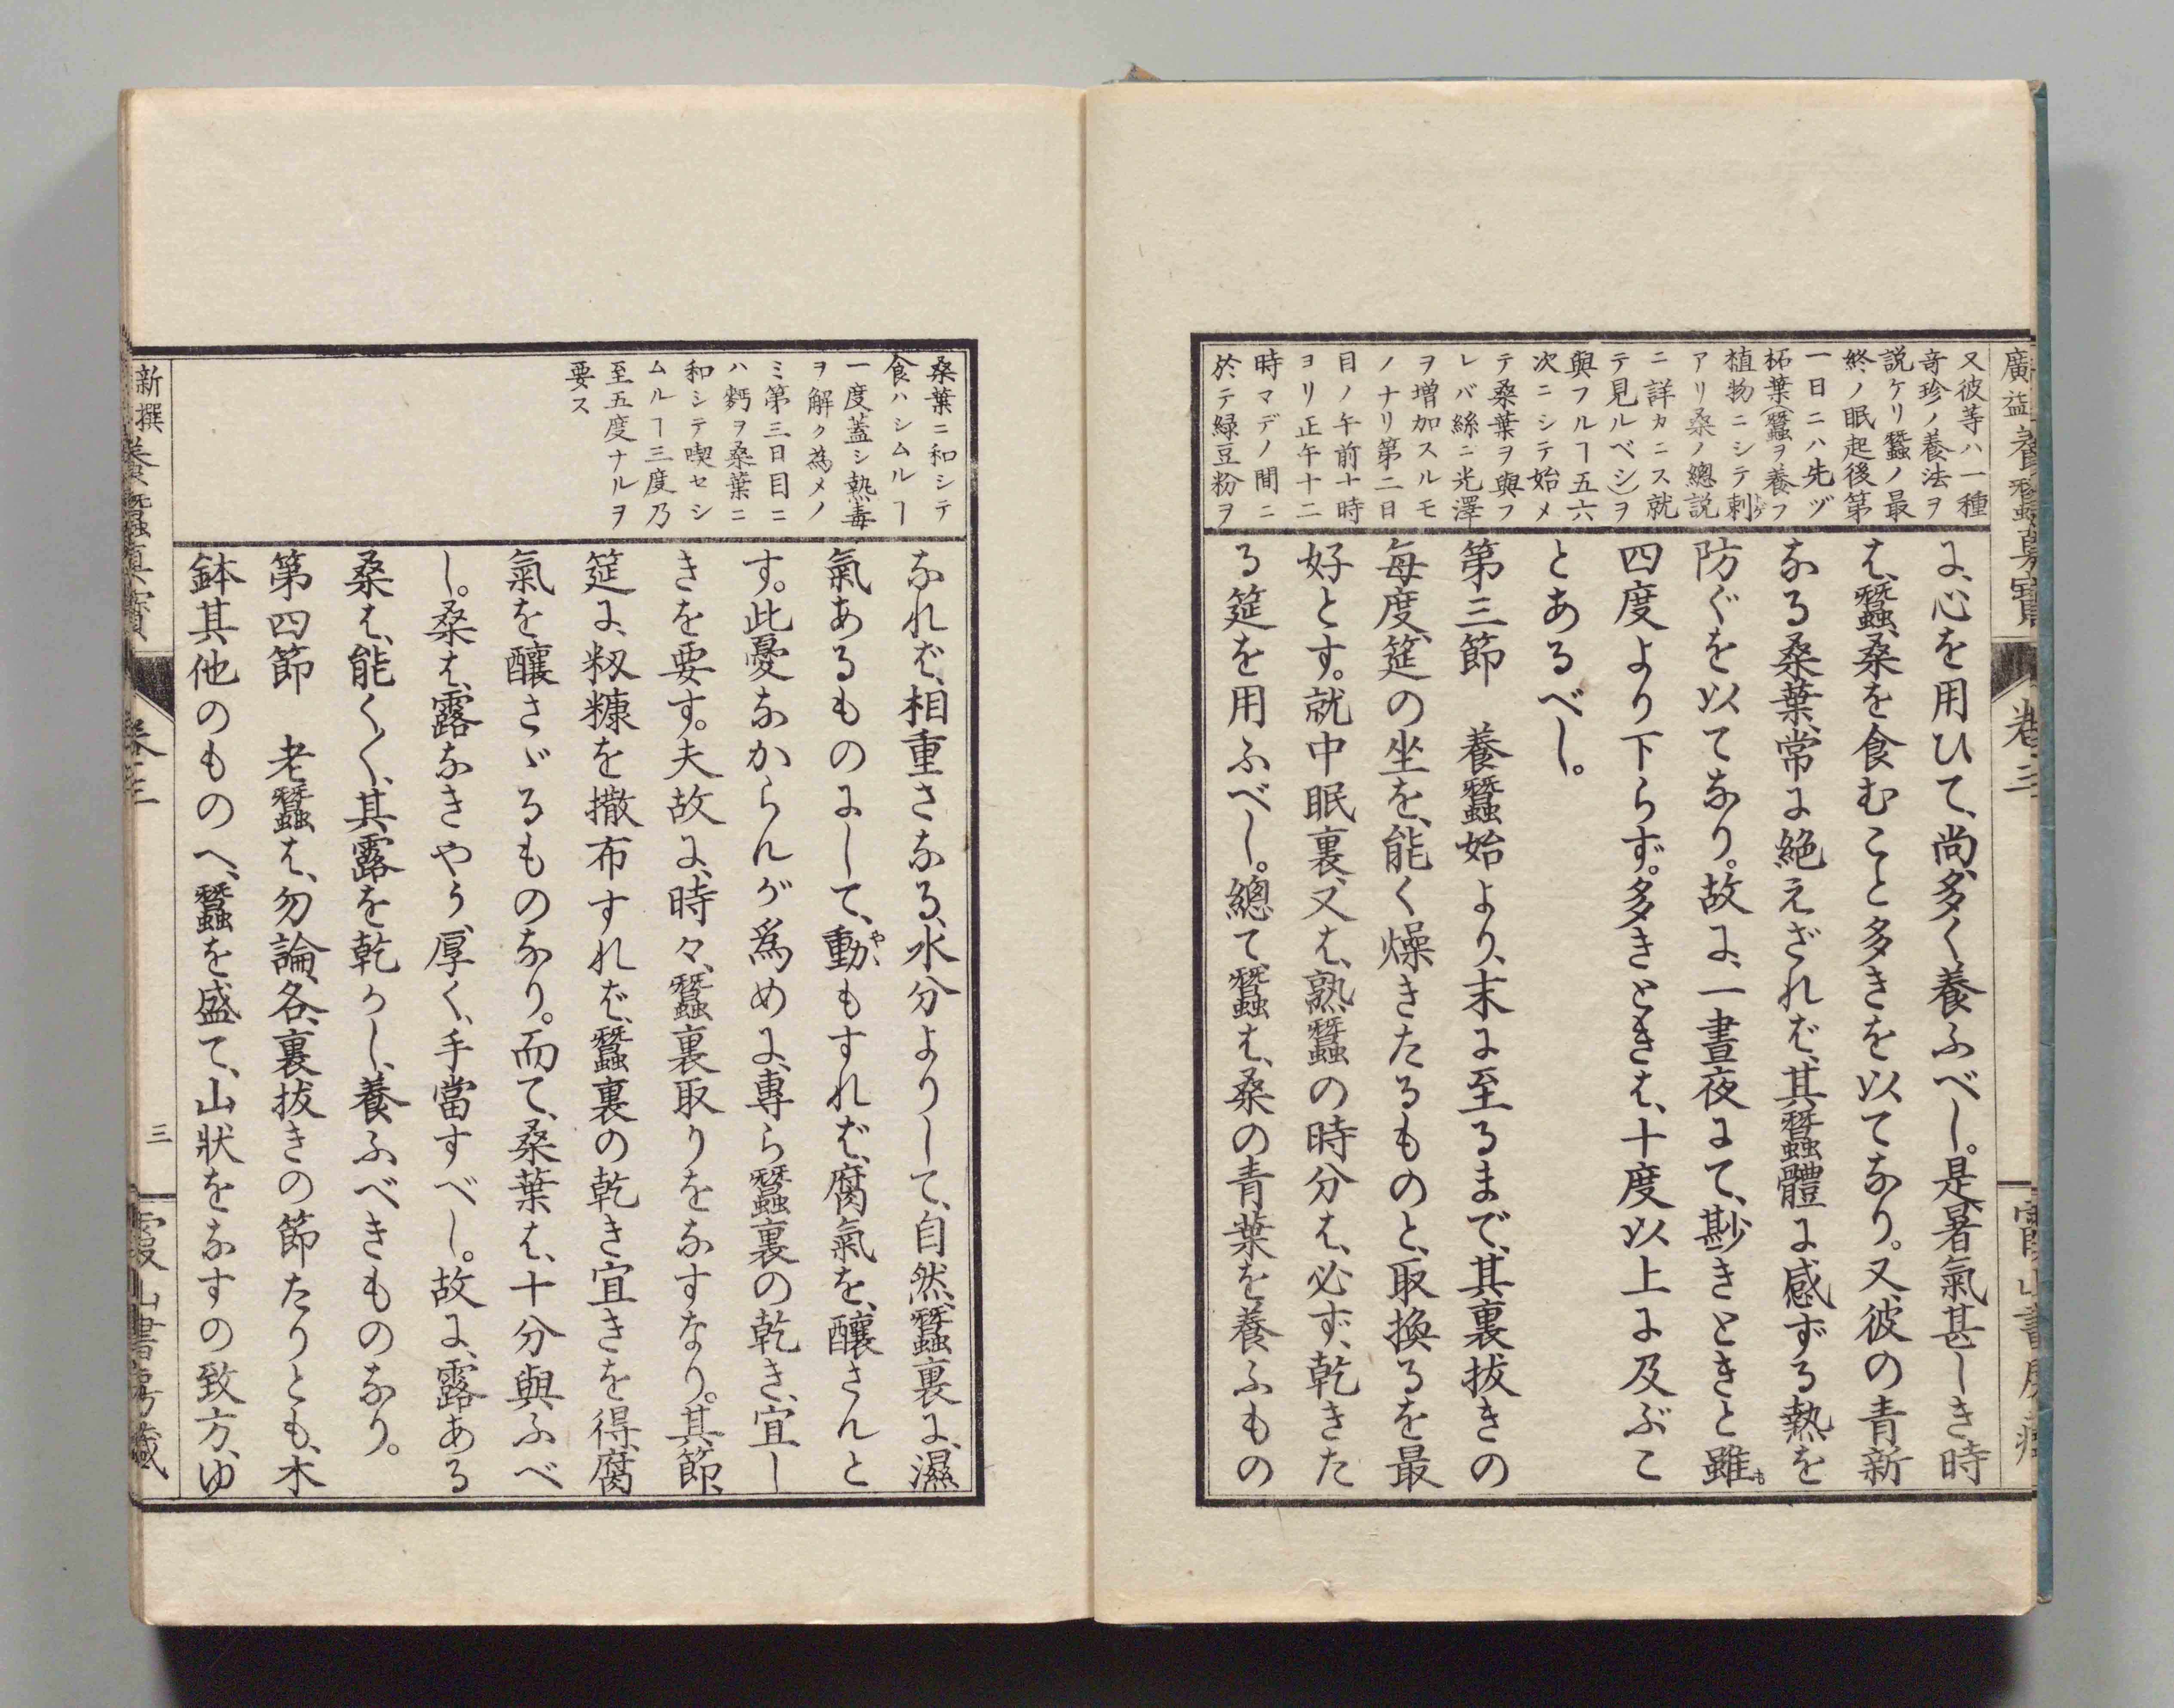 廣益養蠶真寶 卷三 霞山書房藏
又彼等ハ一種
奇珍ノ養法ヲ
説ケリ蠶ノ最
終ノ眠起後第
一日ニハ先ヅ
柘葉(蠶ヲ養フ
植物ニシテ刺
アリ桑ノ總説
ニ詳カニス就
テ見ルベシ)ヲ
與フルヿ五六
次ニシテ始メ
テ桑葉ヲ與フ
レバ絲ニ光澤
ヲ増加スルモ
ノナリ第二日
目ノ午前十時
ヨリ正午十二
時マデノ間ニ
於テ緑豆粉ヲ
に、心を用ひて、尚、多く養ふべし。是、暑氣甚しき時
は、蠶、桑を食むこと多きを以てなり。又、彼の青新
なる桑葉、常に絶えざれば、其蠶體に感ずる熱を
防ぐを以てなり。故に、一晝夜にて、尠きときと雖も
四度より下らず。多きときは、十度以上に及ぶこ
とあるべし。
第三節 養蠶始より、末に至るまで、其裏拔きの
毎度、筵の坐を、能く燥きたるものと、取換るを最
好とす。就中眠裏、又は、熟蠶の時分は、必ず、乾きた
る筵を用ふべし。總て、蠶は、桑の青葉を養ふもの
桑葉ニ和シテ
食ハシムルヿ
一度蓋シ熱毒
ヲ解ク為メノ
ミ第三日目ニ
ハ麪ヲ桑葉ニ
和シテ喫セシ
ムルヿ三度乃
至五度ナルヲ
要ス
なれば、相重さなる、水分よりして、自然、蠶裏に、濕
氣あるものにして、動やゝもすれば、腐氣を、釀さんと
す。此憂なからんが爲めに、專ら蠶裏の乾き、宜し
きを要す。夫故に、時々、蠶裏取りをなすなり。其節、
筵に、籾糠を撒布すれば、蠶裏の乾き宜きを得、腐
氣を釀さゞるものなり。而て、桑葉は、十分與ふべ
し。桑は、露なきやう、厚く、手當すべし。故に、露ある
桑は、能く〱、其露を乾かし、養ふべきものなり。
第四節 老蠶は、勿論、各、裏拔きの節たりとも、木
鉢其他のものへ、蠶を盛て、山狀をなすの致方、ゆ
新撰養蠶真寶 卷三 三 霞山書房藏